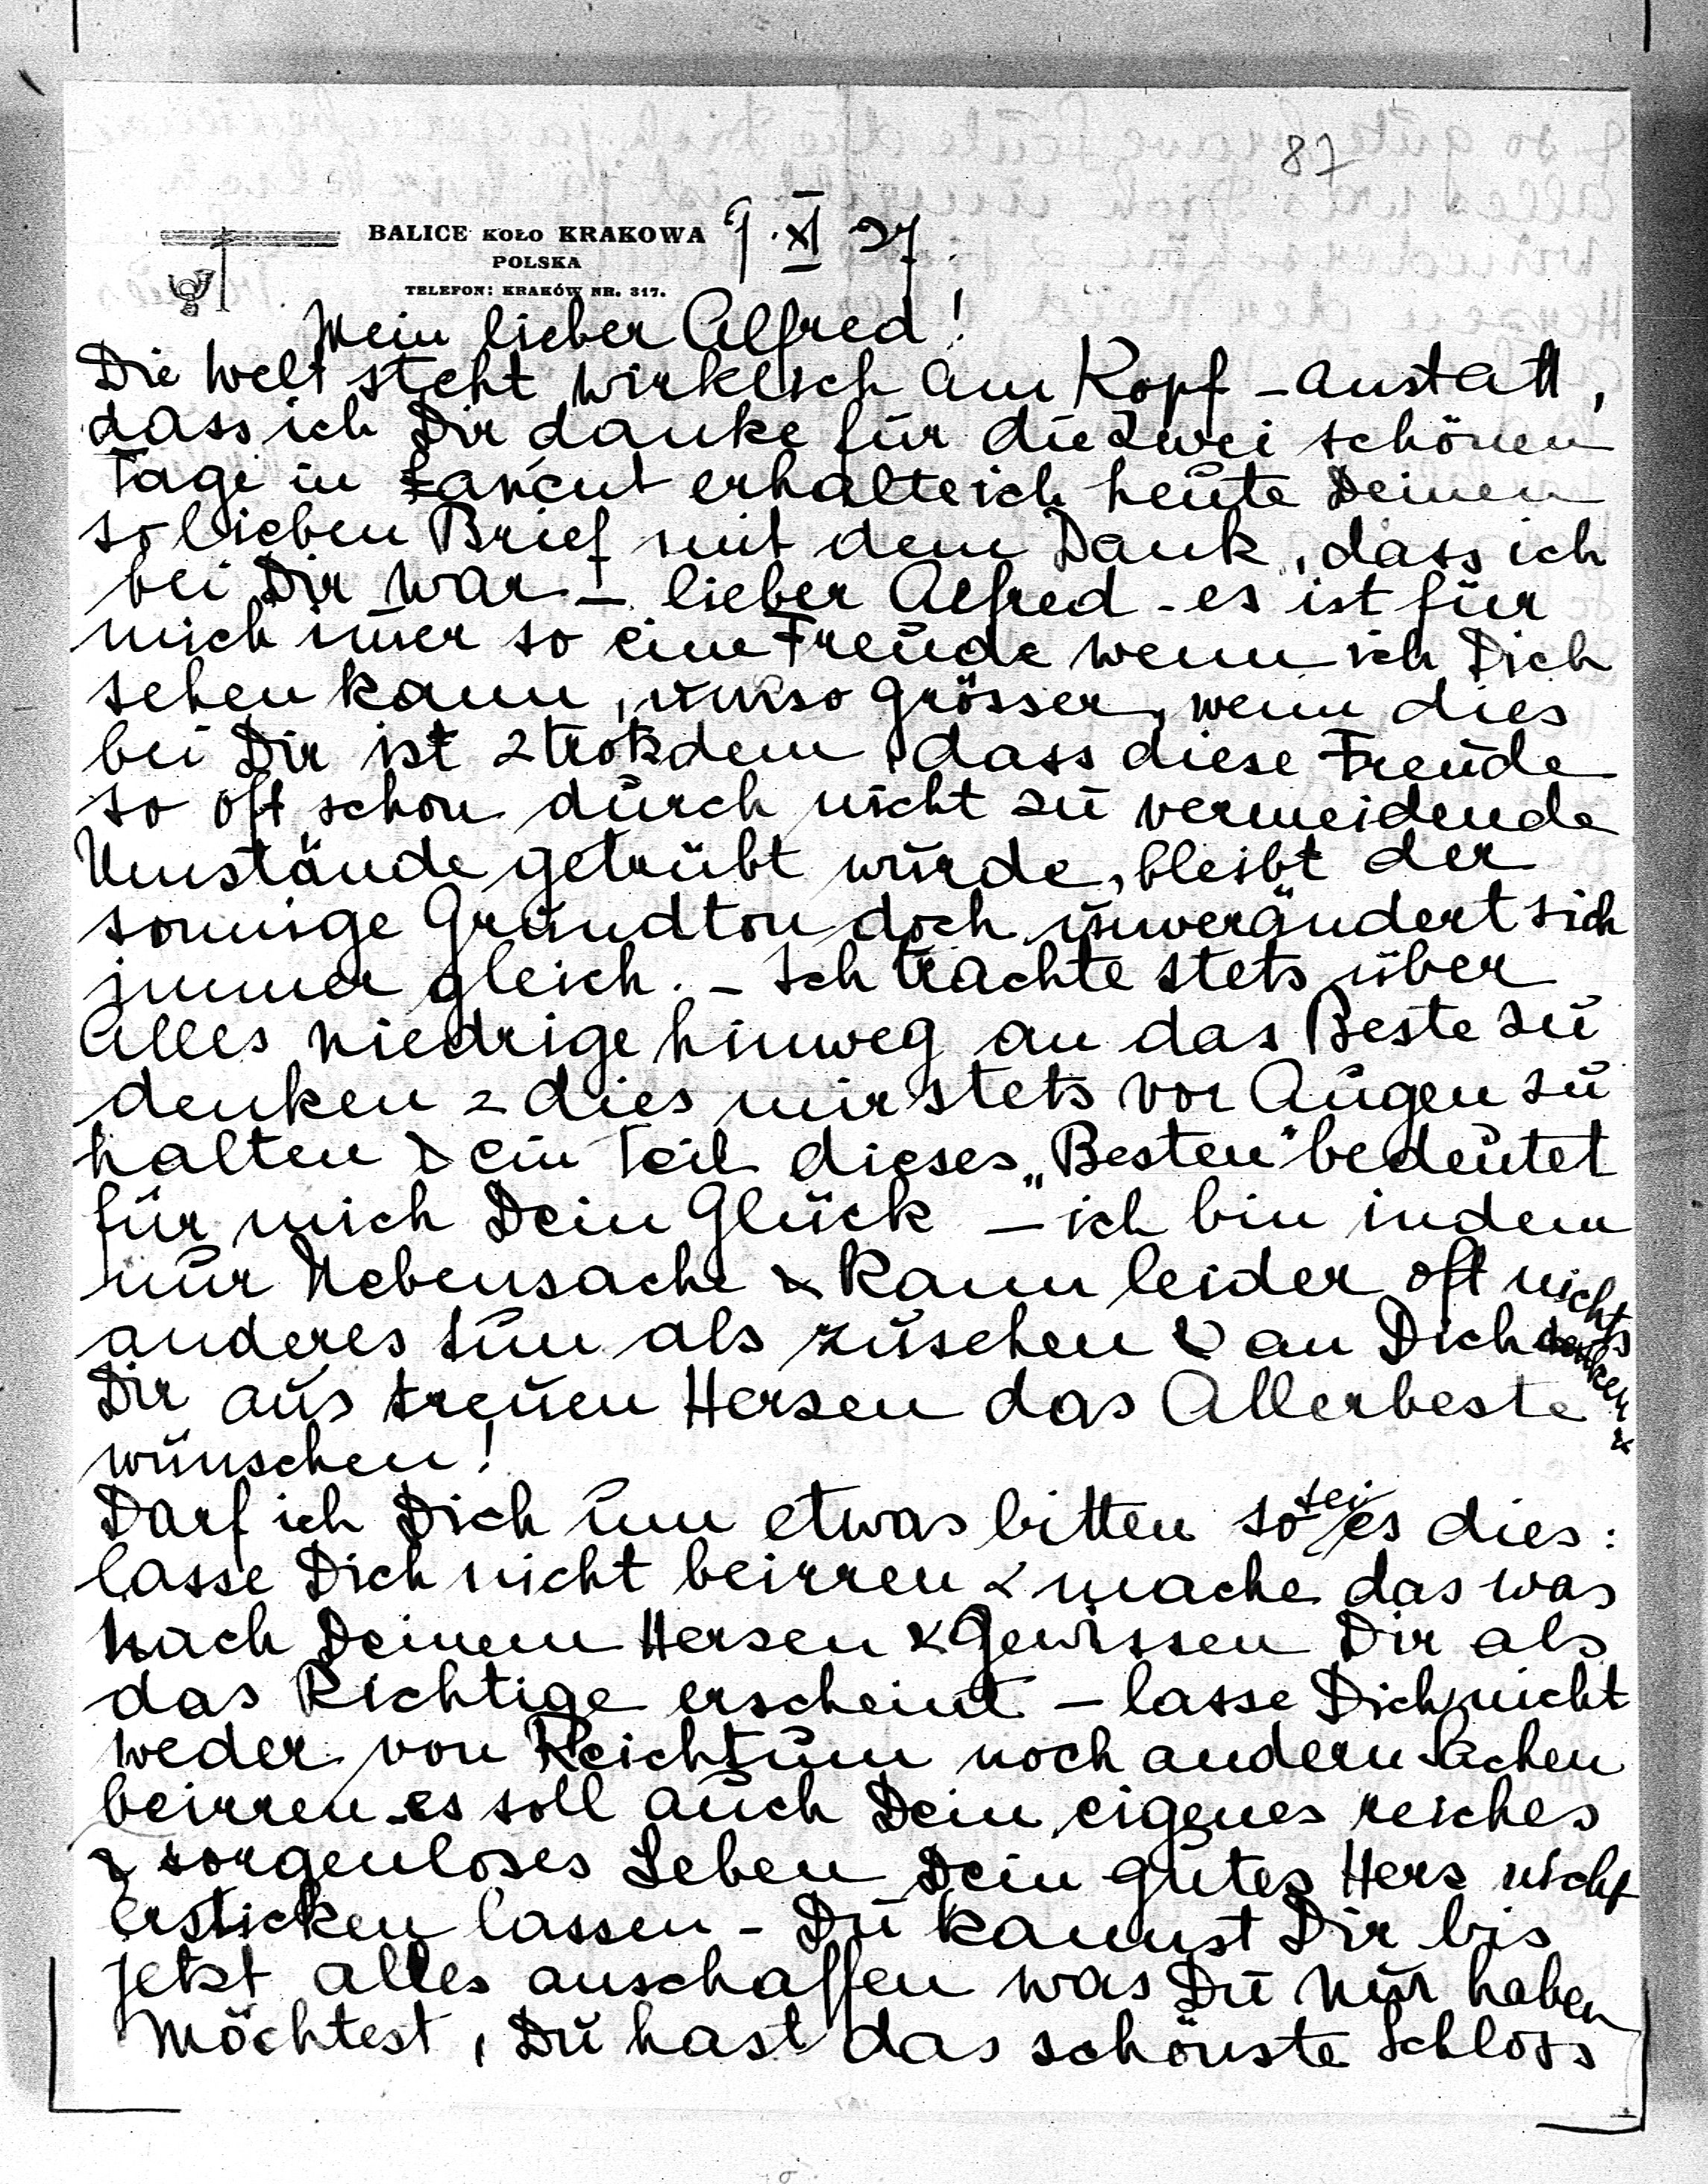 87
BALICE KOŁO KRAKOWA 9. XI 37.
POLSKA
TELEFON: KRAKÓW NR. 317.
Mein lieber Alfred!
Die Welt steht wirklich am Kopf – anstatt,
dass ich Dir danke für die zwei schönen
Tage in Łańcut erhalte ich heute Deinen
so lieben Brief mit dem Dank, dass ich
bei Dir war – lieber Alfred – es ist für
mich im̄er so eine Freude wenn ich Dich
sehen kann, umso grösser, wenn dies
bei Dir ist & trotzdem dass diese Freude
so oft schon durch nicht zu vermeidende
Umstände getrübt wurde, bleibt der
sonnige Grundton doch unverändert sich
immer gleich. – Ich trachte stets über
alles niedrige hinweg an das Beste zu
denken & dies mir stets vor Augen zu
halten & ein Teil dieses „Besten" bedeutet
für mich Dein Glück – ich bin indem
nur Nebensache & kann leider oft nichts
anderes tun als zusehen & an Dich denken &
Dir aus treuen Herzen das Allerbeste
wünschen!
Darf ich Dich um etwas bitten so sei es dies:
lasse Dich nicht beirren & mache das was
nach Deinem Herzen & Gewissen Dir als
das Richtige erscheint – lasse Dich nicht
weder von Reichtum noch andern Sachen
beirren – es soll auch Dein eigenes reiches
& sorgenloses Leben Dein gutes Herz nicht
ersticken lassen – Du kannst Dir bis
jetzt alles anschaffen was Du nur haben
möchtest, Du hast das schönste Schloss